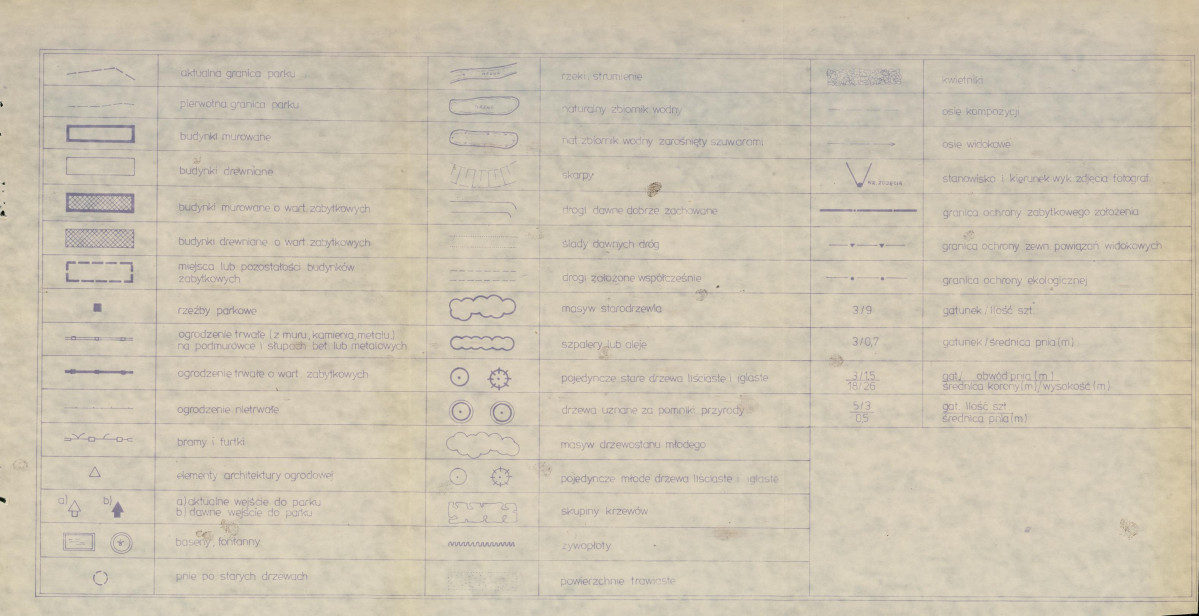 aktualna granica parku
pierwotna granica parku
budynki murowane
budynki drewniane
budynki murowane o wart. zabytkowych
budynki drewniane o wart. zabytkowych
miejsca lub pozostałości budynków
zabytkowych
rzeźby parkowe
ogrodzenie trwałe (z muru, kamienia, metalu)
na podmurówce i słupach bet. lub metalowych
ogrodzenie trwałe o wart. zabytkowych
ogrodzenie nietrwałe
bramy i furtki
elementy architektury ogrodowej
a) b)
a) aktualne wejście do parku
b) dawne wejście do parku
baseny, fontanny
pnie po starych drzewach
rzeki, strumienie
naturalny zbiornik wodny
nat. zbiornik wodny zarośnięty szuwarami
skarpy
drogi dawne dobrze zachowane
ślady dawnych dróg
drogi założone współcześnie
masyw starodrzewia
szpalery lub aleje
pojedyncze stare drzewa liściaste i iglaste
drzewa uznane za pomniki przyrody
masyw drzewostanu młodego
pojedyncze młode drzewa liściaste i iglaste
skupiny krzewów
żywopłoty
powierzchnie trawiaste
kwietniki
osie kompozycji
osie widokowe
stanowisko i kierunek wyk. zdjęcia fotograf.
granica ochrony zabytkowego założenia
granica ochrony zewn. powiązań widokowych
granica ochrony ekologicznej
3/9 gatunek / ilość szt.
3/0,7 gatunek / średnica pnia (m)
3/1,5 gat./ obwód pnia (m)
18/26 średnica korony (m)/wysokość (m)
5/3 gat. ilość szt.
0,5 średnica pnia (m)